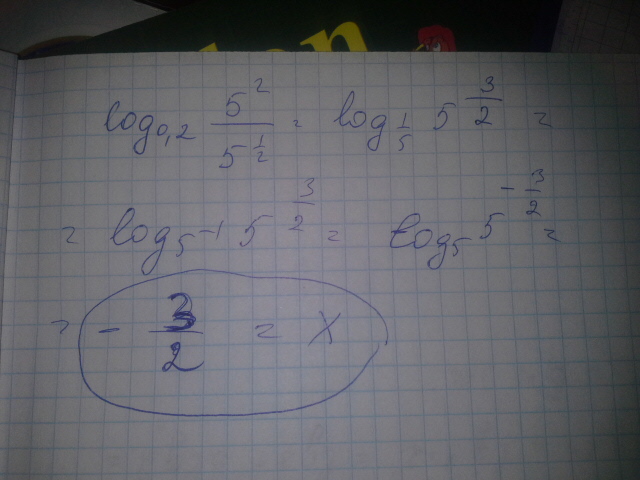 log_{0,2} \frac{5^2}{5^{\frac{1}{2}}} = log_{\frac{1}{5}} 5^{\frac{3}{2}} =
= log_{5^{-1}} 5^{\frac{3}{2}} = log_5 5^{-\frac{3}{2}} =
= - \frac{3}{2} = x